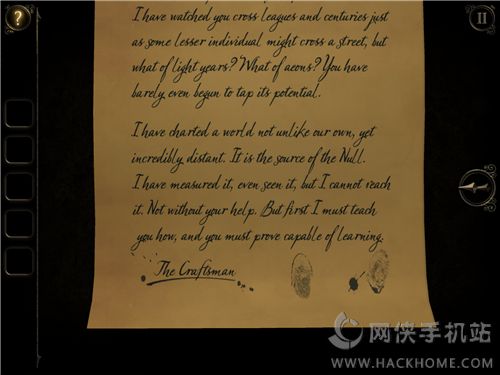 ?
I have watched you cross leagues and centuries just
as some lesser individual might cross a street, but
what of light years? What of aeons? You have
barely even begun to tap its potential.
I have charted a world not unlike our own, yet
incredibly distant. It is the source of the Null.
I have measured it, even seen it, but I cannot reach
it. Not without your help. But first I must teach
you how, and you must prove capable of learning.
The Craftsman
网侠手机站
WWW.HACKHOME.COM